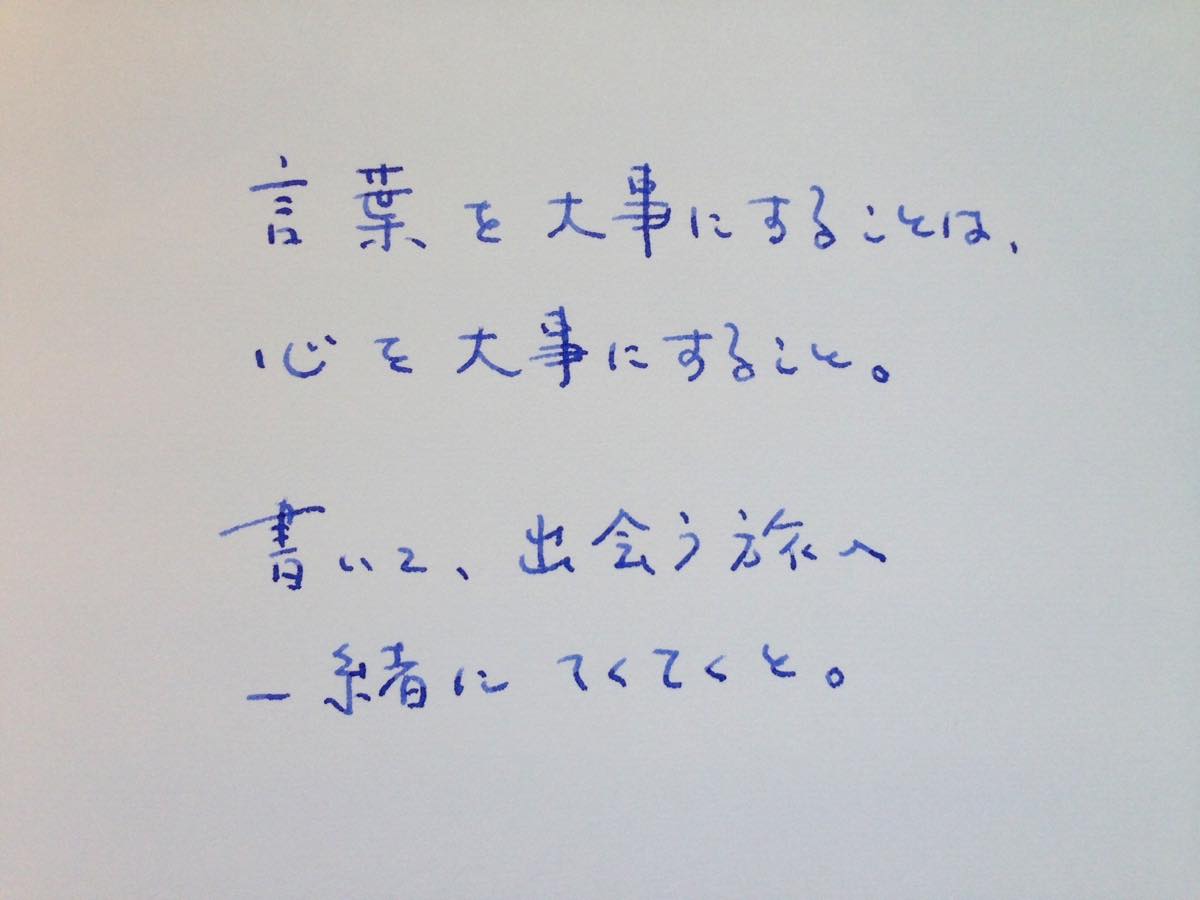 言葉を大事にすることは、
心を大事にすること。
書いて、出会う旅へ
一緒に てくてくと。